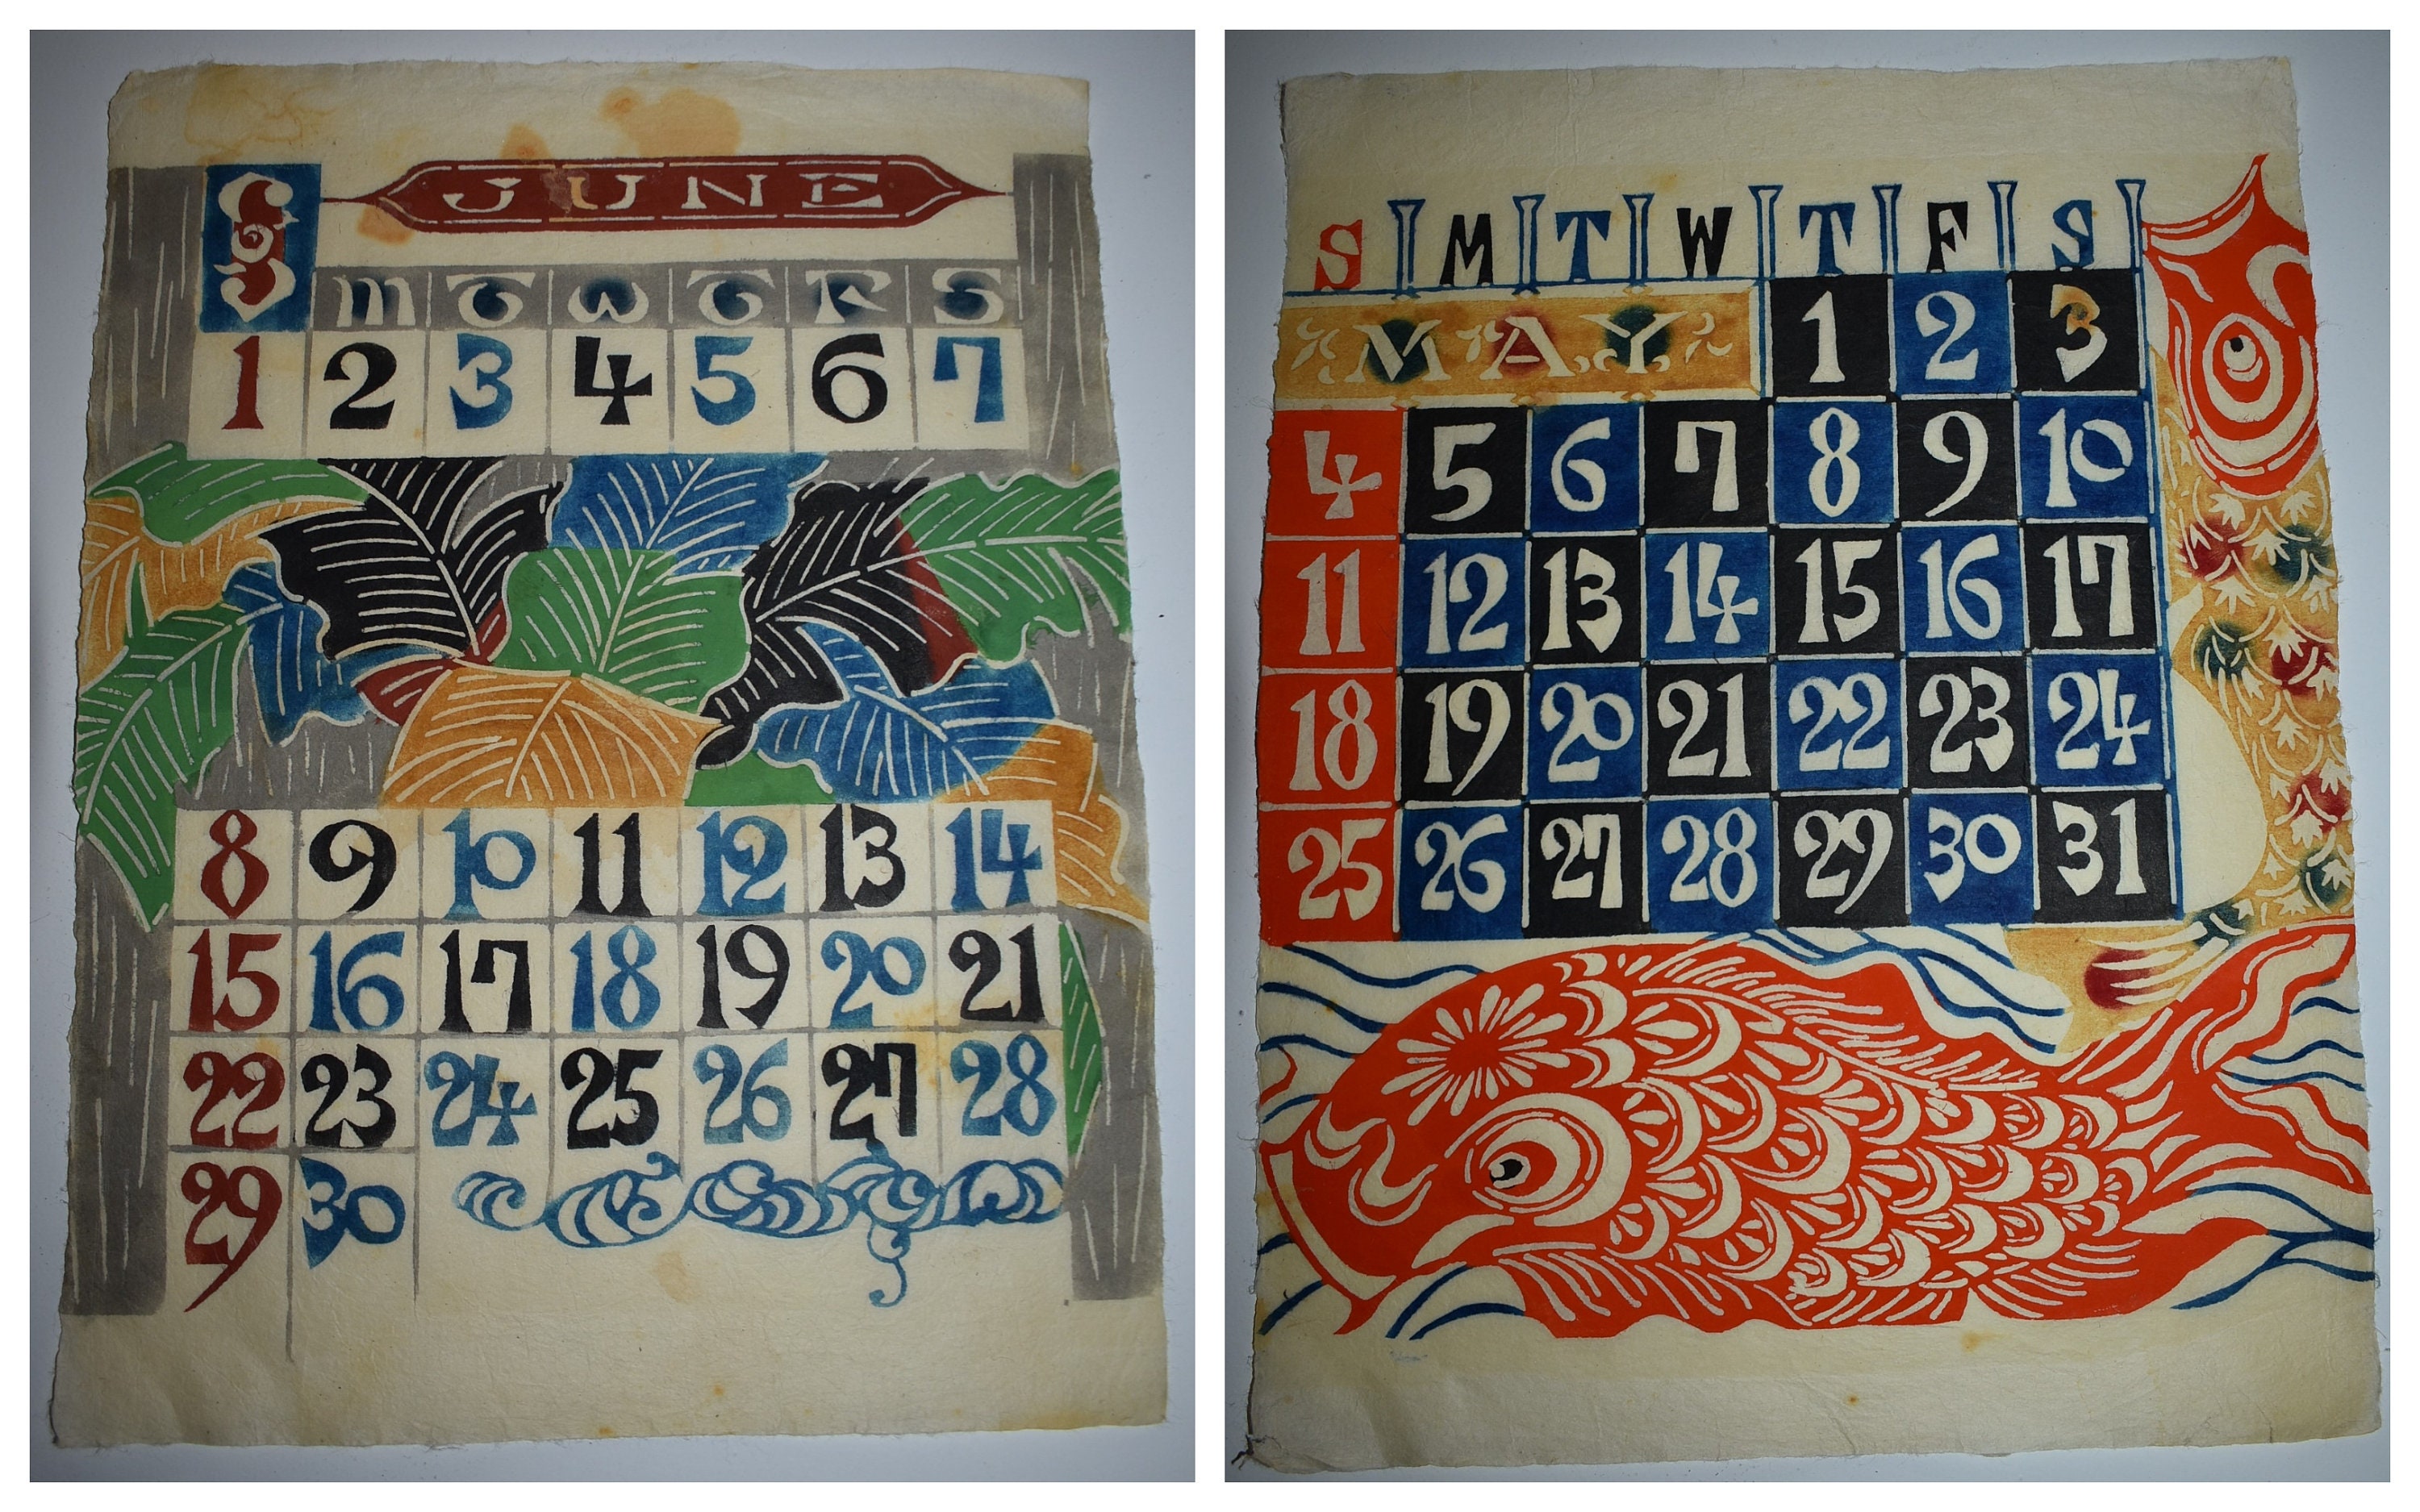 JUNE
S M T W T F S
1 2 3 4 5 6 7
8 9 10 11 12 13 14
15 16 17 18 19 20 21
22 23 24 25 26 27 28
29 30
S M T W T F S
MAY 1 2 3
4 5 6 7 8 9 10
11 12 13 14 15 16 17
18 19 20 21 22 23 24
25 26 27 28 29 30 31